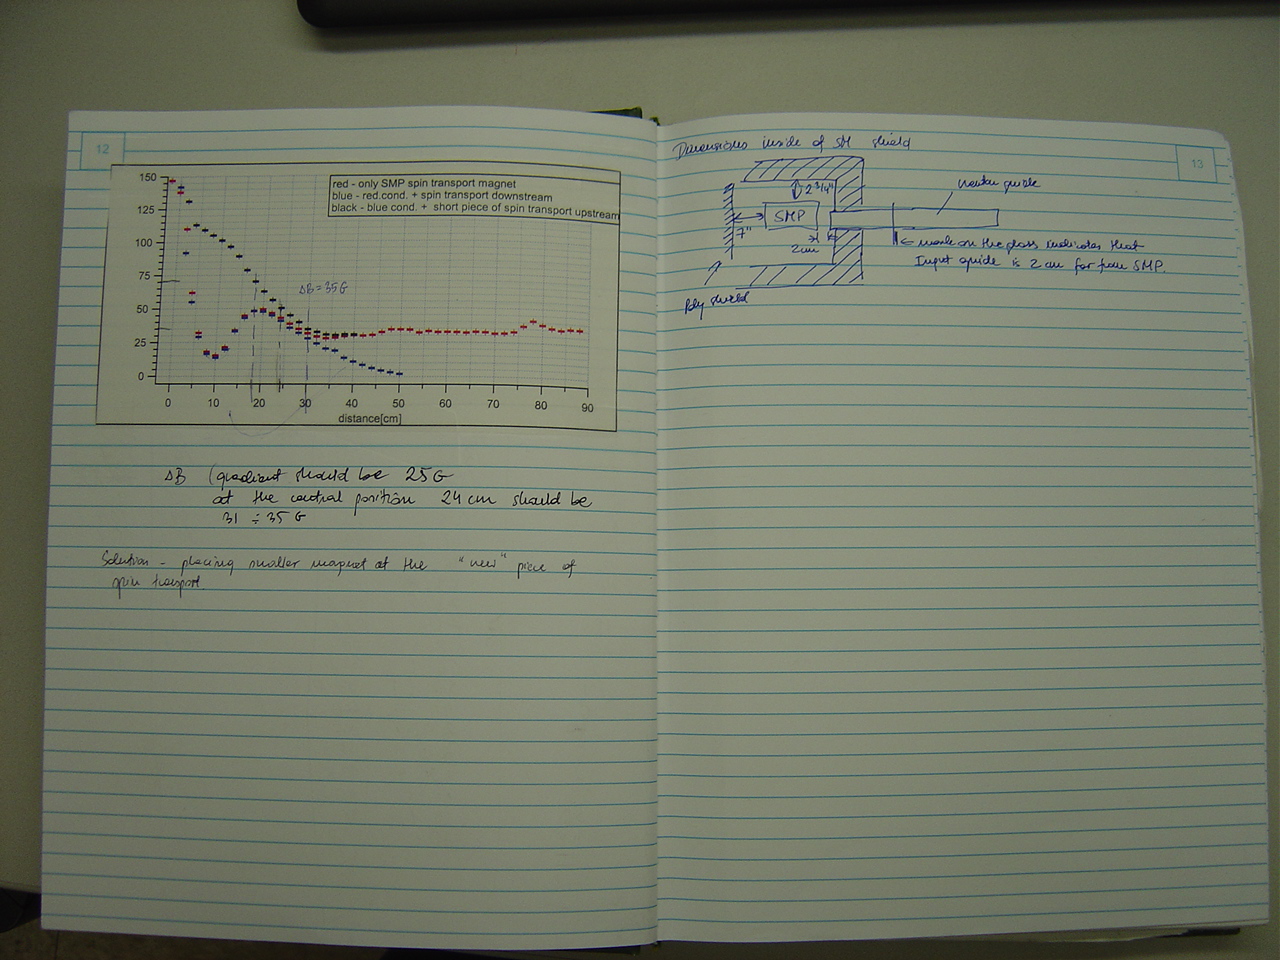 12
150
125
100
75
50
25
0
red - only SMP spin transport magnet
blue - red.cond. + spin transport downstream
black - blue cond. + short piece of spin transport upstream
ΔB = 35G
0 10 20 30 40 50 60 70 80 90
distance[cm]
ΔB (gradient should be 25G
at the central position 24 cm should be
31 ÷ 35 G
Solution - placing smaller magnet at the "new" piece of
spin transport.
13
Dimensions inside of SM shield
2 3/4"
neutron guide
SMP
7"
2cm
← mark on the glass indicates that
Input guide is 2 cm far from SMP.
Poly shield